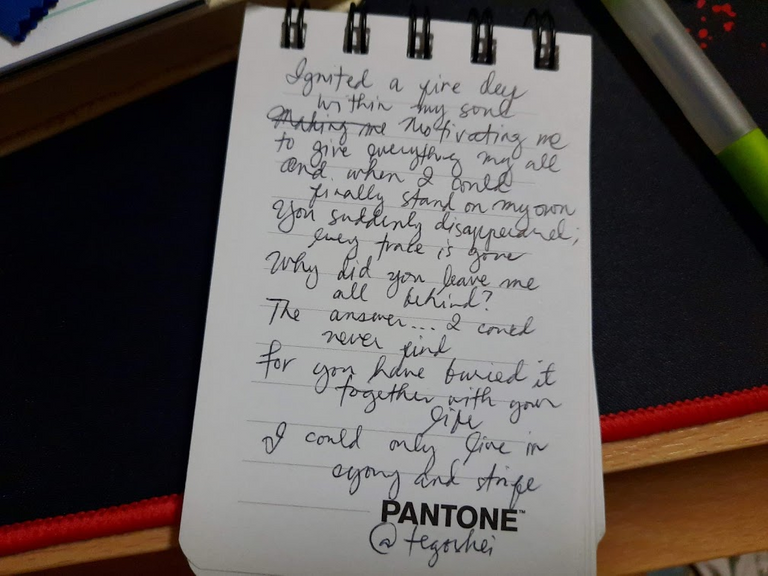 Ignited a fire deep
within my soul
Making me Motivating me
to give everything my all
And when I could
finally stand on my own
You suddenly disappeared;
every trace is gone
Why did you leave me
all behind?
The answer... I could
never find
For you have buried it
together with your
life
I could only live in
agony and strife
PANTONE™
@tegoshei